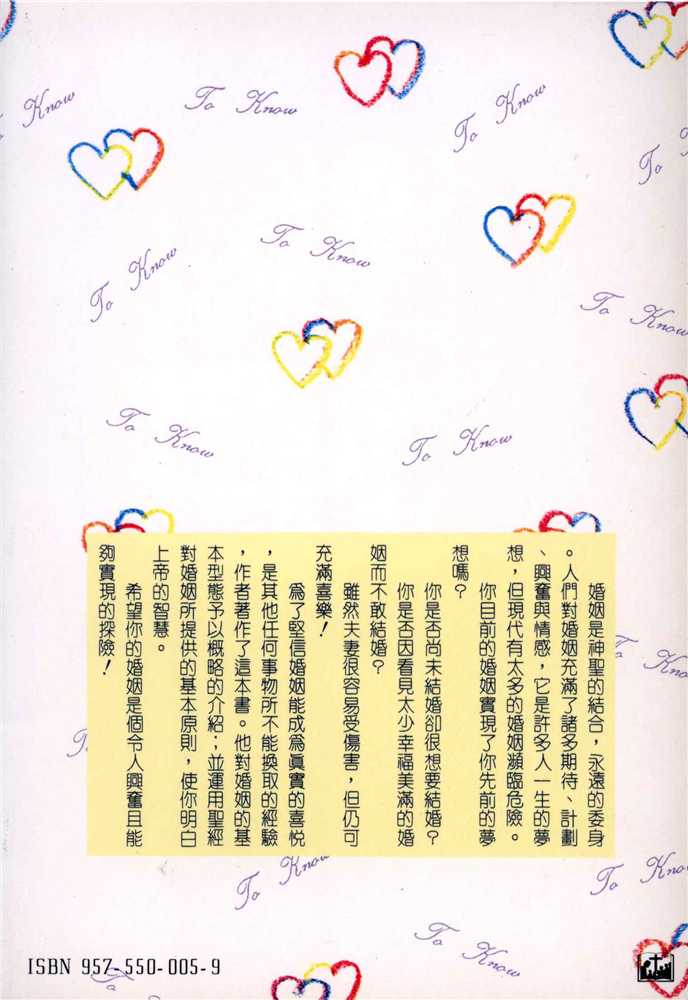 To Know
To Know
To Know
To
To Know
To Know
To Know
To Know
To Know
婚姻是神聖的結合，永遠的委身
。人們對婚姻充滿了諸多期待、計劃
、興奮與情感，它是許多人一生的夢
想，但現代有太多的婚姻瀕臨危險。
你目前的婚姻實現了你先前的夢
想嗎？
你是否尚未結婚卻很想要結婚？
你是否因看見太少幸福美滿的婚
姻而不敢結婚？
雖然夫妻很容易受傷害，但仍可
充滿喜樂！
為了堅信婚姻能成為真實的喜悅
，是其他任何事物所不能換取的經驗
，作者著作了這本書。他對婚姻的基
本型態予以概略的介紹；並運用聖經
對婚姻所提供的基本原則，使你明白
上帝的智慧。
希望你的婚姻是個令人興奮且能
夠實現的探險！
To Know
To Know
To Know
To Know
To
ISBN 957-550-005-9